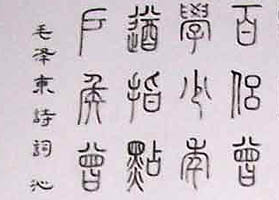 百侶曾
學少年
遒指點
戶矦曾
毛澤東詩詞沁